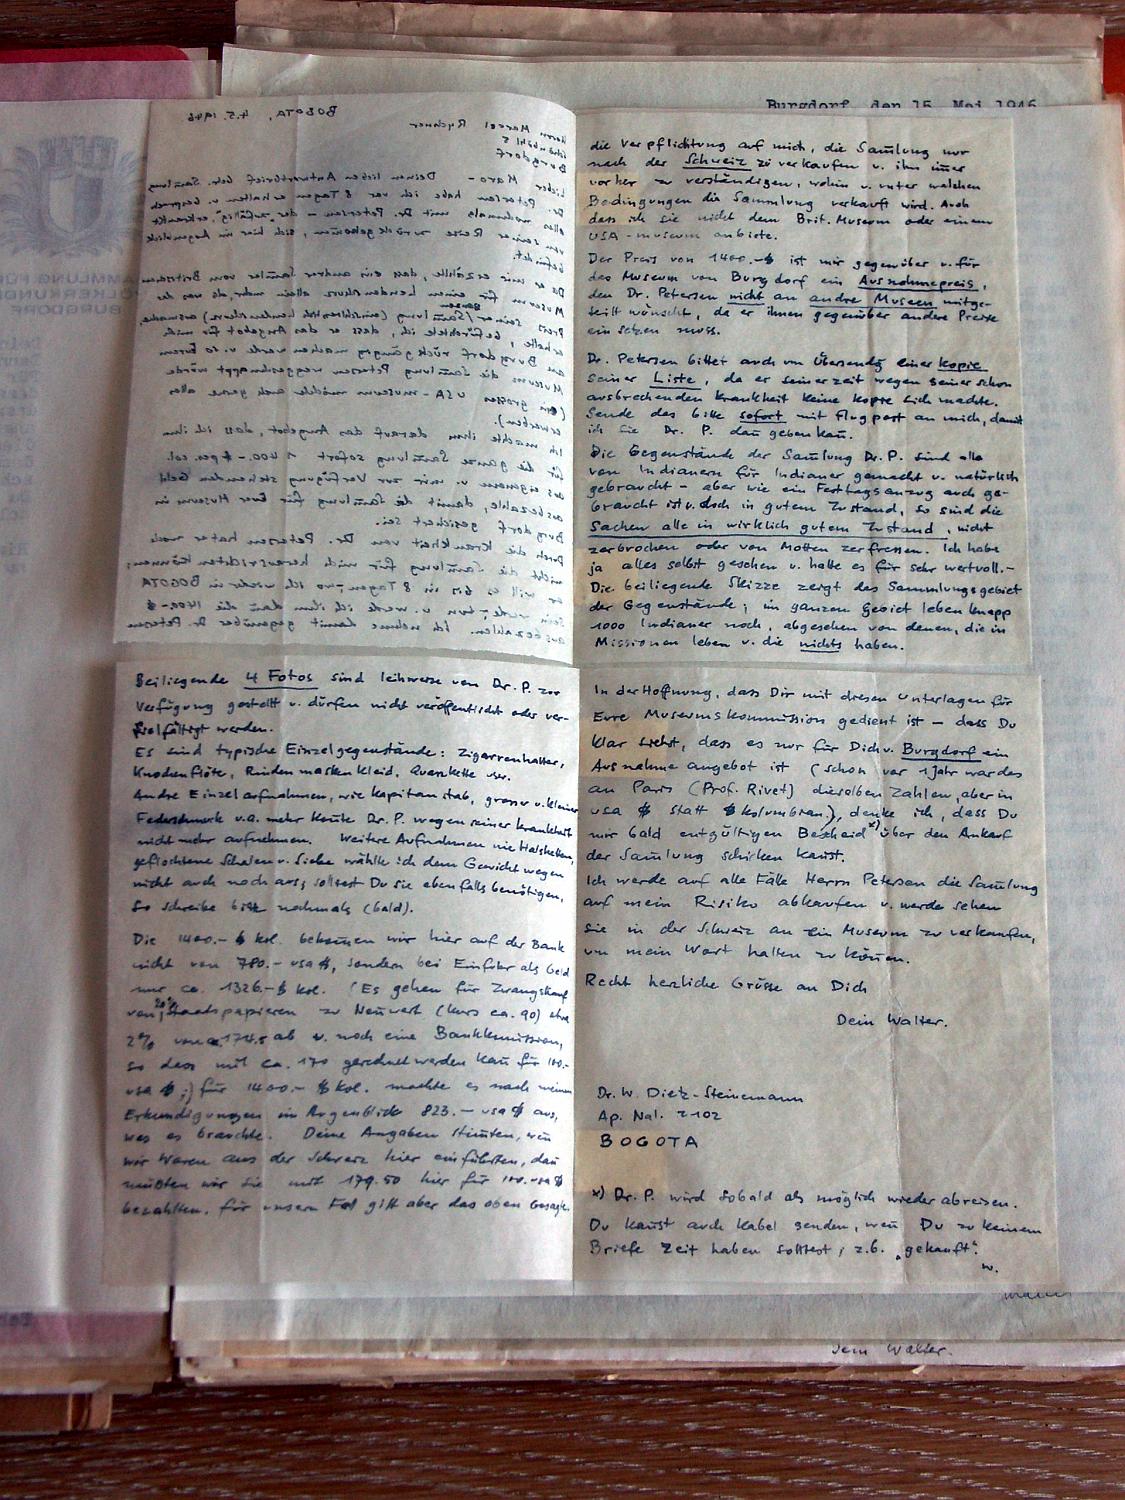 Burgdorf, den 15. Mai 1946
BOGOTA, 4.5.1946
Herrn Marcel Rychner
Burgdorf
Lieber Maro - Deinen lieben Antwortbrief betr. Samlung
Dr. Petersen habe ich vor 8 Tagen erhalten u. besprach
alles nochmals mit Dr. Petersen - der "zufällig", erkrankt,
von seiner Reise zurückgekommen, sich hier im Augenblick
befindet.
Da er mir erzählte, dass ein andrer Samler vom Britischen
Museum für einen Lendenschurz allein mehr, als was der
Preis seiner ganzen Samlung (einschliesslich Lendenschurz) ausmache,
erhielte, befürchtete ich, dass er das Angebot für mich
an Burgdorf rückgängig machen werde u. so Eurem
Museum die Samlung Petersen weggeschnappt würde
(ein grosses USA-museum möchte auch gerne alles
erwerben).
Ich machte ihm darauf das Angebot, dass ich ihm
für die ganze Samlung sofort 1400.-$ col.
aus eigenem u. mir zur Verfügung stehenden Geld
ausbezahle, damit die Samlung für Euer Museum in
Burgdorf gesichert sei.
Durch die Krankheit von Dr. Petersen hat er noch
nicht die Samlung für mich herrichten können;
er will es bis in 8 Tagen, wo ich wieder in BOGOTA
sein werde, tun u. werde ich ihm dan die 1400.-$
ausbezahlen. Ich nehme damit gegenüber Dr. Petersen
die Verpflichtung auf mich, die Samlung nur
nach der Schweiz zu verkaufen u. ihn imer
vorher zu verständigen, wohin u. unter welchen
Bedingungen die Samlung verkauft wird. Auch
dass ich sie nicht dem Brit. Museum oder einem
USA-museum anbiete.
Der Preis von 1400.-$ ist mir gegenüber u. für
das Museum von Burgdorf ein Ausnahmepreis,
den Dr. Petersen nicht an andre Museen mitge-
teilt wünscht, da er ihnen gegenüber andere Preise
einsetzen muss.
Dr. Petersen bittet auch um Übersendg einer Kopie
seiner Liste, da er seinerzeit wegen seiner schon
ausbrechenden Krankheit keine Kopie sich machte.
Sende das bitte sofort mit Flugpost an mich, damit
ich sie Dr. P. dan geben kan.
Die Gegenstände der Samlung Dr. P. sind alle
von Indianern für Indianer gemacht u. natürlich
gebraucht - aber wie ein Festtagsanzug auch ge-
braucht ist u. doch in gutem Zustand, so sind die
Sachen alle in wirklich gutem Zustand, nicht
zerbrochen oder von Motten zerfressen. Ich habe
ja alles selbst gesehen u. halte es für sehr wertvoll.-
Die beiliegende Skizze zeigt das Sammlungsgebiet
der Gegenstände; im ganzen Gebiet leben knapp
1000 Indianer noch, abgesehen von denen, die in
Missionen leben u. die nichts haben.
Beiliegende 4 Fotos sind leihweise von Dr. P. zur
Verfügung gestellt u. dürfen nicht veröffentlicht oder ver-
vielfältigt werden.
Es sind typische Einzelgegenstände: Zigarrenhalter,
Knochenflöte, Rinden maskenkleid, Quarzkette usw.
Andre Einzelaufnahmen, wie Kapitanstab, grosser u. kleiner
Federschmuck u.a. mehr konte Dr. P. wegen seiner Krankheit
nicht mehr aufnehmen. Weitere Aufnahmen wie Halsketten,
geflochtene Schalen u. Siebe wählte ich dem Gewicht wegen
nicht auch noch aus; solltest Du sie ebenfalls benötigen,
so schreibe bitte nochmals (bald).
Die 1400.-$ kol. bekomen wir hier auf der Bank
nicht von 780.- usa $, sondern bei Einfuhr als Geld
nur ca. 1326.-$ kol. (Es gehen für Zwangskauf
von 20% Staatspapieren zu Neuwert (kurs ca. 90) etwa
2% von 174.5 ab u. noch eine Bankkomission,
so dass mit ca. 170 gerechnet werden kan für 100.-
usa $;) für 1400.- $ kol. machte es nach meinen
Erkundigungen im Augenblick 823.- usa $ aus,
was es brauchte. Deine Angaben stimten, wen
wir Waren aus der Schweiz hier einführten, dan
müssten wir sie mit 179.50 hier für 100.- usa $
bezahlen. Für unsern Fall gilt aber das oben Gesagte.
In der Hoffnung, dass Dir mit diesen Unterlagen für
Eure Museumskommission gedient ist - dass Du
klar siehst, dass es nur für Dich u. Burgdorf ein
Ausnahme angebot ist (schon vor 1 Jahr war das
an Paris (Prof. Rivet) dieselben Zahlen, aber in
usa $ statt $ kolumbian.), denke ich, dass Du
mir bald entgültigen Bescheid x) über den Ankauf
der Samlung schicken kanst.
Ich werde auf alle Fälle Herrn Petersen die Samlung
auf mein Risiko abkaufen u. werde sehen
sie in der Schweiz an ein Museum zu verkaufen,
um mein Wort halten zu könen.
Recht herzliche Grüsse an Dich
Dein Walter.
Dr. W. Dietz-Steinemann
Ap. Nal. 2102
BOGOTA
x) Dr. P. wird sobald als möglich wieder abreisen.
Du kanst auch Kabel senden, wen Du zu keinem
Briefe Zeit haben solltest, z.b. "gekauft".
W.
Dein Walter.
SAMMLUNG FÜR
VÖLKERKUNDE
BURGDORF